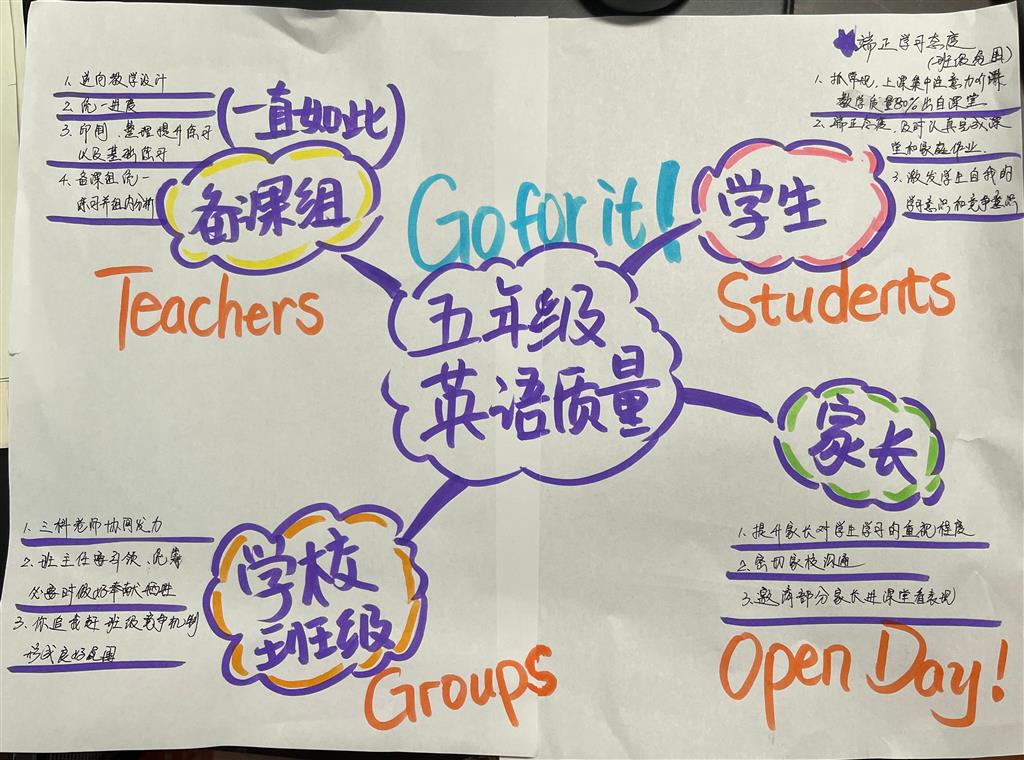 1. 逆向教学设计
2. 统一进度
3. 印制、整理提升练习
以及基础练习
4. 备课组统一
练习并组内分析
(一直如此)
备课组
Teachers
Go for it!
★端正学习态度
(班级氛围)
1. 抓常规，上课集中注意力听课
教学质量80%出自课堂
2. 端正态度，及时认真完成课
堂和家庭作业.
3. 激发学生自我的
学习意识和竞争意识
学生
Students
五年级
英语质量
家长
1. 提升家长对学生学习的重视程度
2. 密切家校沟通
3. 邀请部分家长进课堂看表现
Open Day!
1. 三科老师协同发力
2. 班主任要引领、统筹
必要时做好奉献牺牲
3. 你追我赶 班级竞争机制
形成良好氛围
学校
班级
Groups